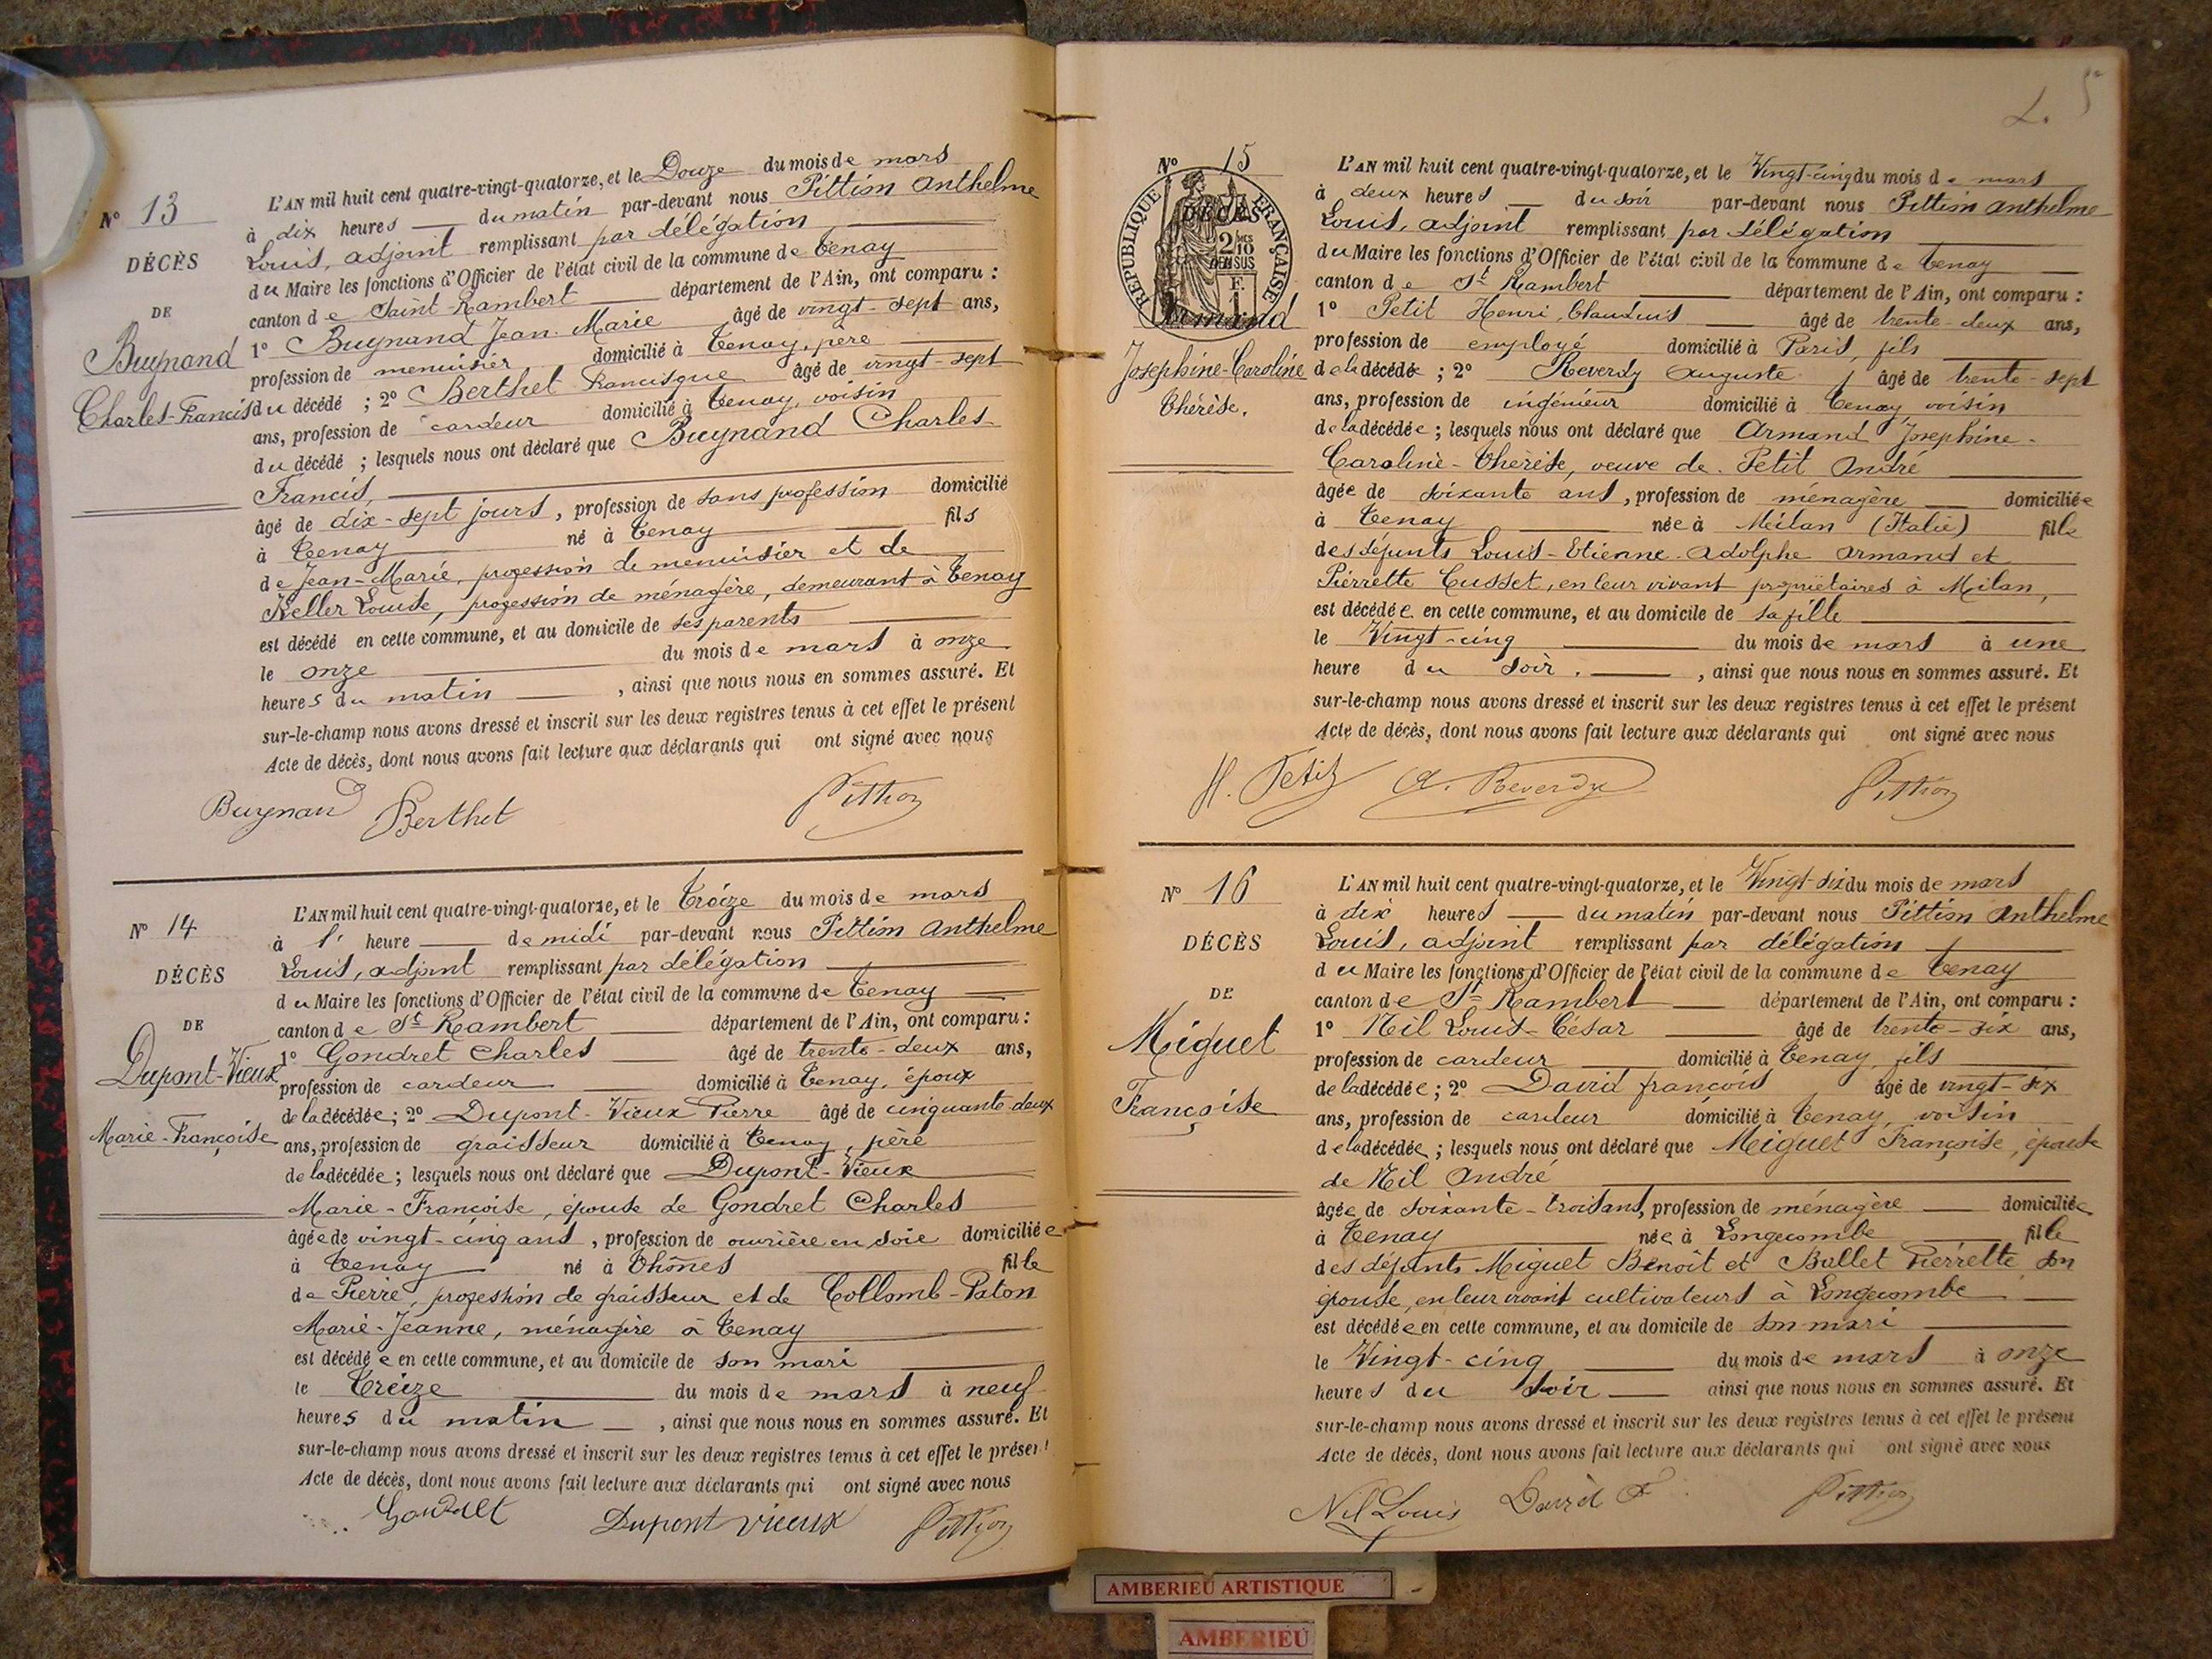 N° 13
DÉCÈS
DE
Buynand
Charles-Francis
L'AN mil huit cent quatre-vingt-quatorze, et le Douze du mois de mars
à dix heures du matin par-devant nous Pittion Anthelme
Louis, adjoint remplissant par délégation
du Maire les fonctions d'Officier de l'état civil de la commune de Tenay
canton de Saint Rambert département de l'Ain, ont comparu :
1° Buynand Jean-Marie âgé de vingt-sept ans,
profession de menuisier domicilié à Tenay, père
du décédé ; 2° Berthet Francisque âgé de vingt-sept
ans, profession de cardeur domicilié à Tenay, voisin
du décédé ; lesquels nous ont déclaré que Buynand Charles-
Francis,
âgé de dix-sept jours, profession de sans profession domicilié
à Tenay né à Tenay fils
de Jean-Marie, profession de menuisier et de
Keller Louise, profession de ménagère, demeurant à Tenay
est décédé en cette commune, et au domicile de ses parents
le onze du mois de mars à onze
heures du matin , ainsi que nous nous en sommes assuré. Et
sur-le-champ nous avons dressé et inscrit sur les deux registres tenus à cet effet le présent
Acte de décès, dont nous avons fait lecture aux déclarants qui ont signé avec nous
Buynand Berthet Pittion
N° 14
DÉCÈS
DE
Dupont-Vieux
Marie-Françoise
L'AN mil huit cent quatre-vingt-quatorze, et le treize du mois de mars
à l' heure de midi par-devant nous Pittion Anthelme
Louis, adjoint remplissant par délégation
du Maire les fonctions d'Officier de l'état civil de la commune de Tenay
canton de St Rambert département de l'Ain, ont comparu :
1° Gondret Charles âgé de trente-deux ans,
profession de cardeur domicilié à Tenay, époux
de la décédée ; 2° Dupont-Vieux Pierre âgé de cinquante-deux
ans, profession de graisseur domicilié à Tenay, père
de la décédée ; lesquels nous ont déclaré que Dupont-Vieux
Marie-Françoise, épouse de Gondret Charles
âgée de vingt-cinq ans, profession de ouvrière en soie domiciliée
à Tenay né à Thônes fille
de Pierre, profession de graisseur et de Collomb-Paton
Marie-Jeanne, ménagère à Tenay
est décédée en cette commune, et au domicile de son mari
le treize du mois de mars à neuf
heures du matin , ainsi que nous nous en sommes assuré. Et
sur-le-champ nous avons dressé et inscrit sur les deux registres tenus à cet effet le présent
Acte de décès, dont nous avons fait lecture aux déclarants qui ont signé avec nous
Gondret Dupont vieux Pittion
N° 15
RÉPUBLIQUE FRANÇAISE
DÉCÈS
2/10 EN SUS
Armand
Josephine-Caroline
Thérèse.
L'AN mil huit cent quatre-vingt-quatorze, et le Vingt-cinq du mois de mars
à deux heures du soir par-devant nous Pittion Anthelme
Louis, adjoint remplissant par délégation
du Maire les fonctions d'Officier de l'état civil de la commune de Tenay
canton de St Rambert département de l'Ain, ont comparu :
1° Petit Henri, Claudius âgé de trente-deux ans,
profession de employé domicilié à Paris, fils
de la décédée ; 2° Reverdy Auguste âgé de trente-sept
ans, profession de ingénieur domicilié à Tenay, voisin
de la décédée ; lesquels nous ont déclaré que Armand Josephine-
Caroline-Thérèse, veuve de Petit André
âgée de soixante ans, profession de ménagère domiciliée
à Tenay née à Milan (Italie) fille
des défunts Louis-Etienne-Adolphe Armand et
Pierrette Cusset, en leur vivant propriétaires à Milan,
est décédée en cette commune, et au domicile de sa fille
le Vingt-cinq du mois de mars à une
heure du soir. , ainsi que nous nous en sommes assuré. Et
sur-le-champ nous avons dressé et inscrit sur les deux registres tenus à cet effet le présent
Acte de décès, dont nous avons fait lecture aux déclarants qui ont signé avec nous
H. Petit A. Reverdy Pittion
N° 16
DÉCÈS
DE
Miguet
Françoise
L'AN mil huit cent quatre-vingt-quatorze, et le Vingt-six du mois de mars
à dix heures du matin par-devant nous Pittion Anthelme
Louis, adjoint remplissant par délégation
du Maire les fonctions d'Officier de l'état civil de la commune de Tenay
canton de St Rambert département de l'Ain, ont comparu :
1° Nil Louis-César âgé de trente-six ans,
profession de cardeur domicilié à Tenay, fils
de la décédée ; 2° David françois âgé de vingt-six
ans, profession de cardeur domicilié à Tenay, voisin
de la décédée ; lesquels nous ont déclaré que Miguet Françoise, épouse
de Nil André
âgée de soixante-trois ans, profession de ménagère domiciliée
à Tenay née à Longecombe fille
des défunts Miguet Benoît et Ballet Pierrette son
épouse, en leur vivant cultivateurs à Longecombe
est décédée en cette commune, et au domicile de son mari
le Vingt-cinq du mois de mars à onze
heures du soir ainsi que nous nous en sommes assuré. Et
sur-le-champ nous avons dressé et inscrit sur les deux registres tenus à cet effet le présent
Acte de décès, dont nous avons fait lecture aux déclarants qui ont signé avec nous
Nil Louis David F Pittion
AMBERIEU ARTISTIQUE
AMBERIEU